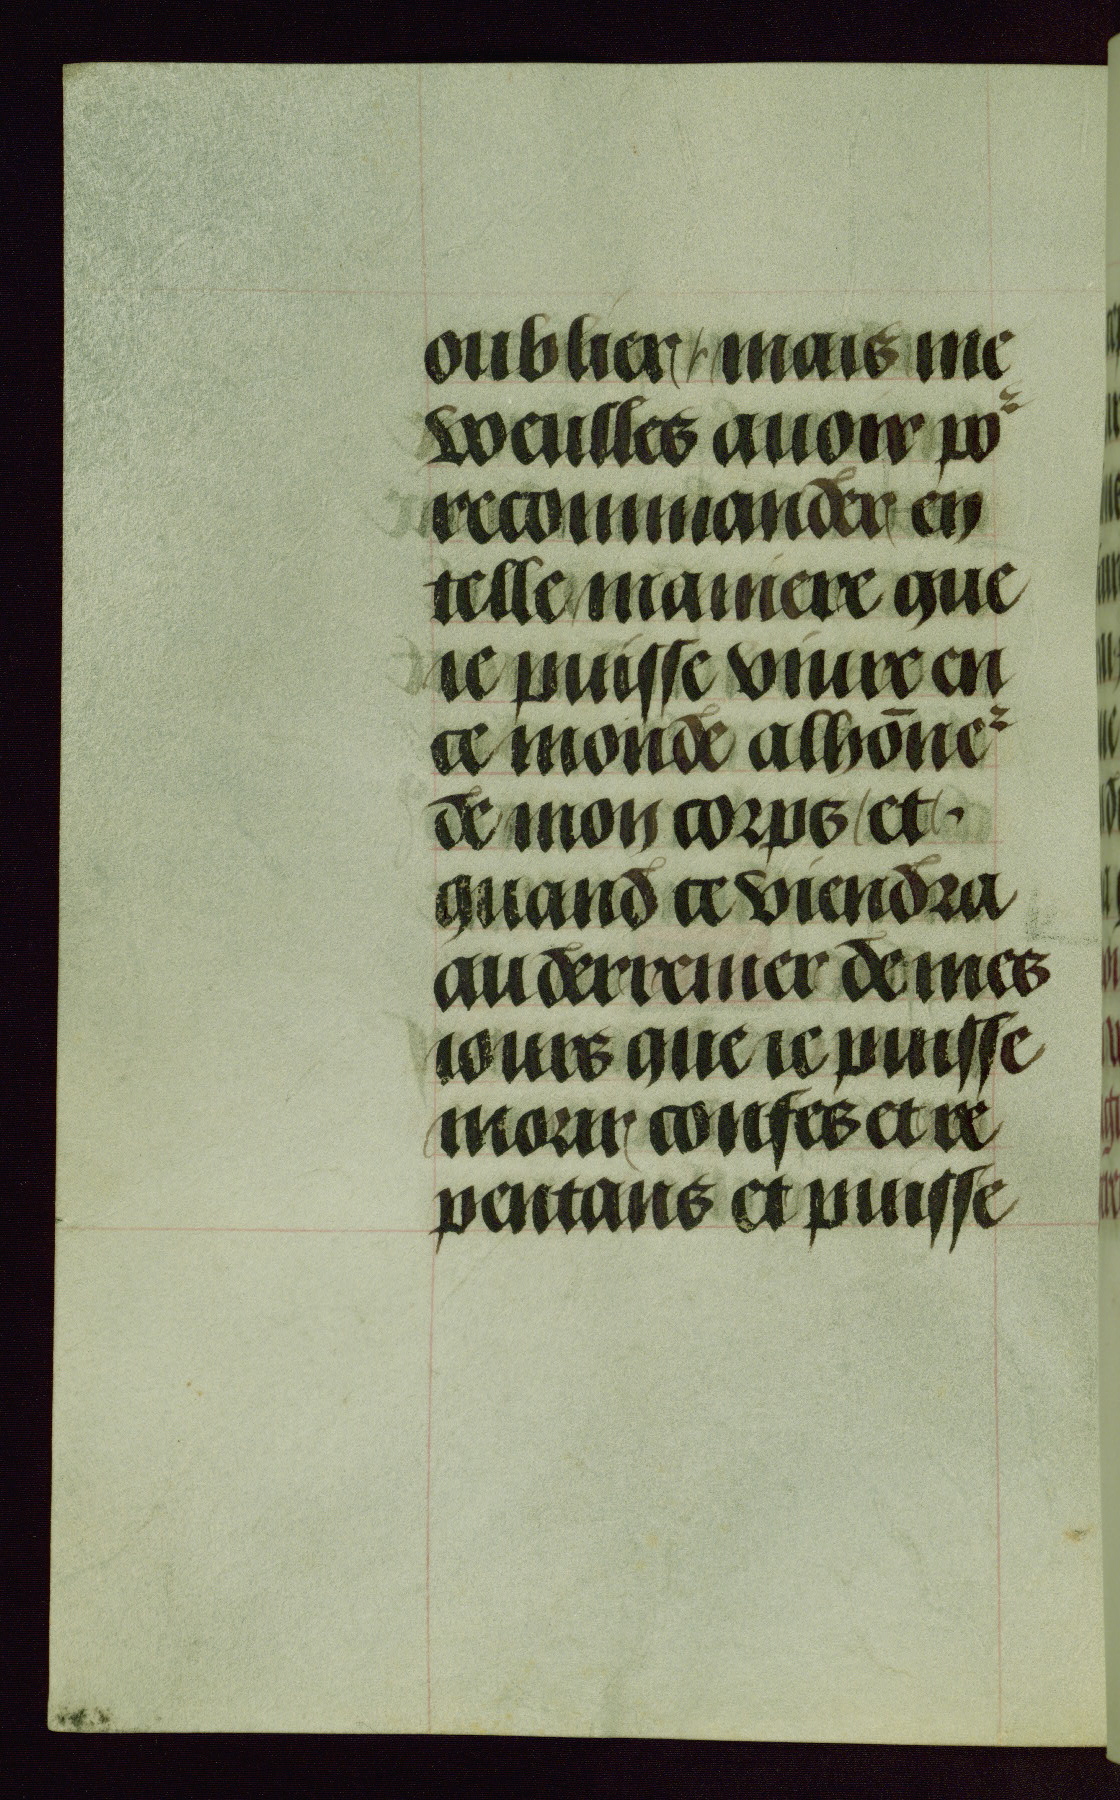 oublier / mais me
weulles auoir poᷣ
recommander en
telle maniere que
ie puisse viure en
ce monde alhōneᷣ
de mon corps / et ·
quand ce viendra
au derrenier de mes
iours que ie puisse
morir confes et re
pentans et puisse